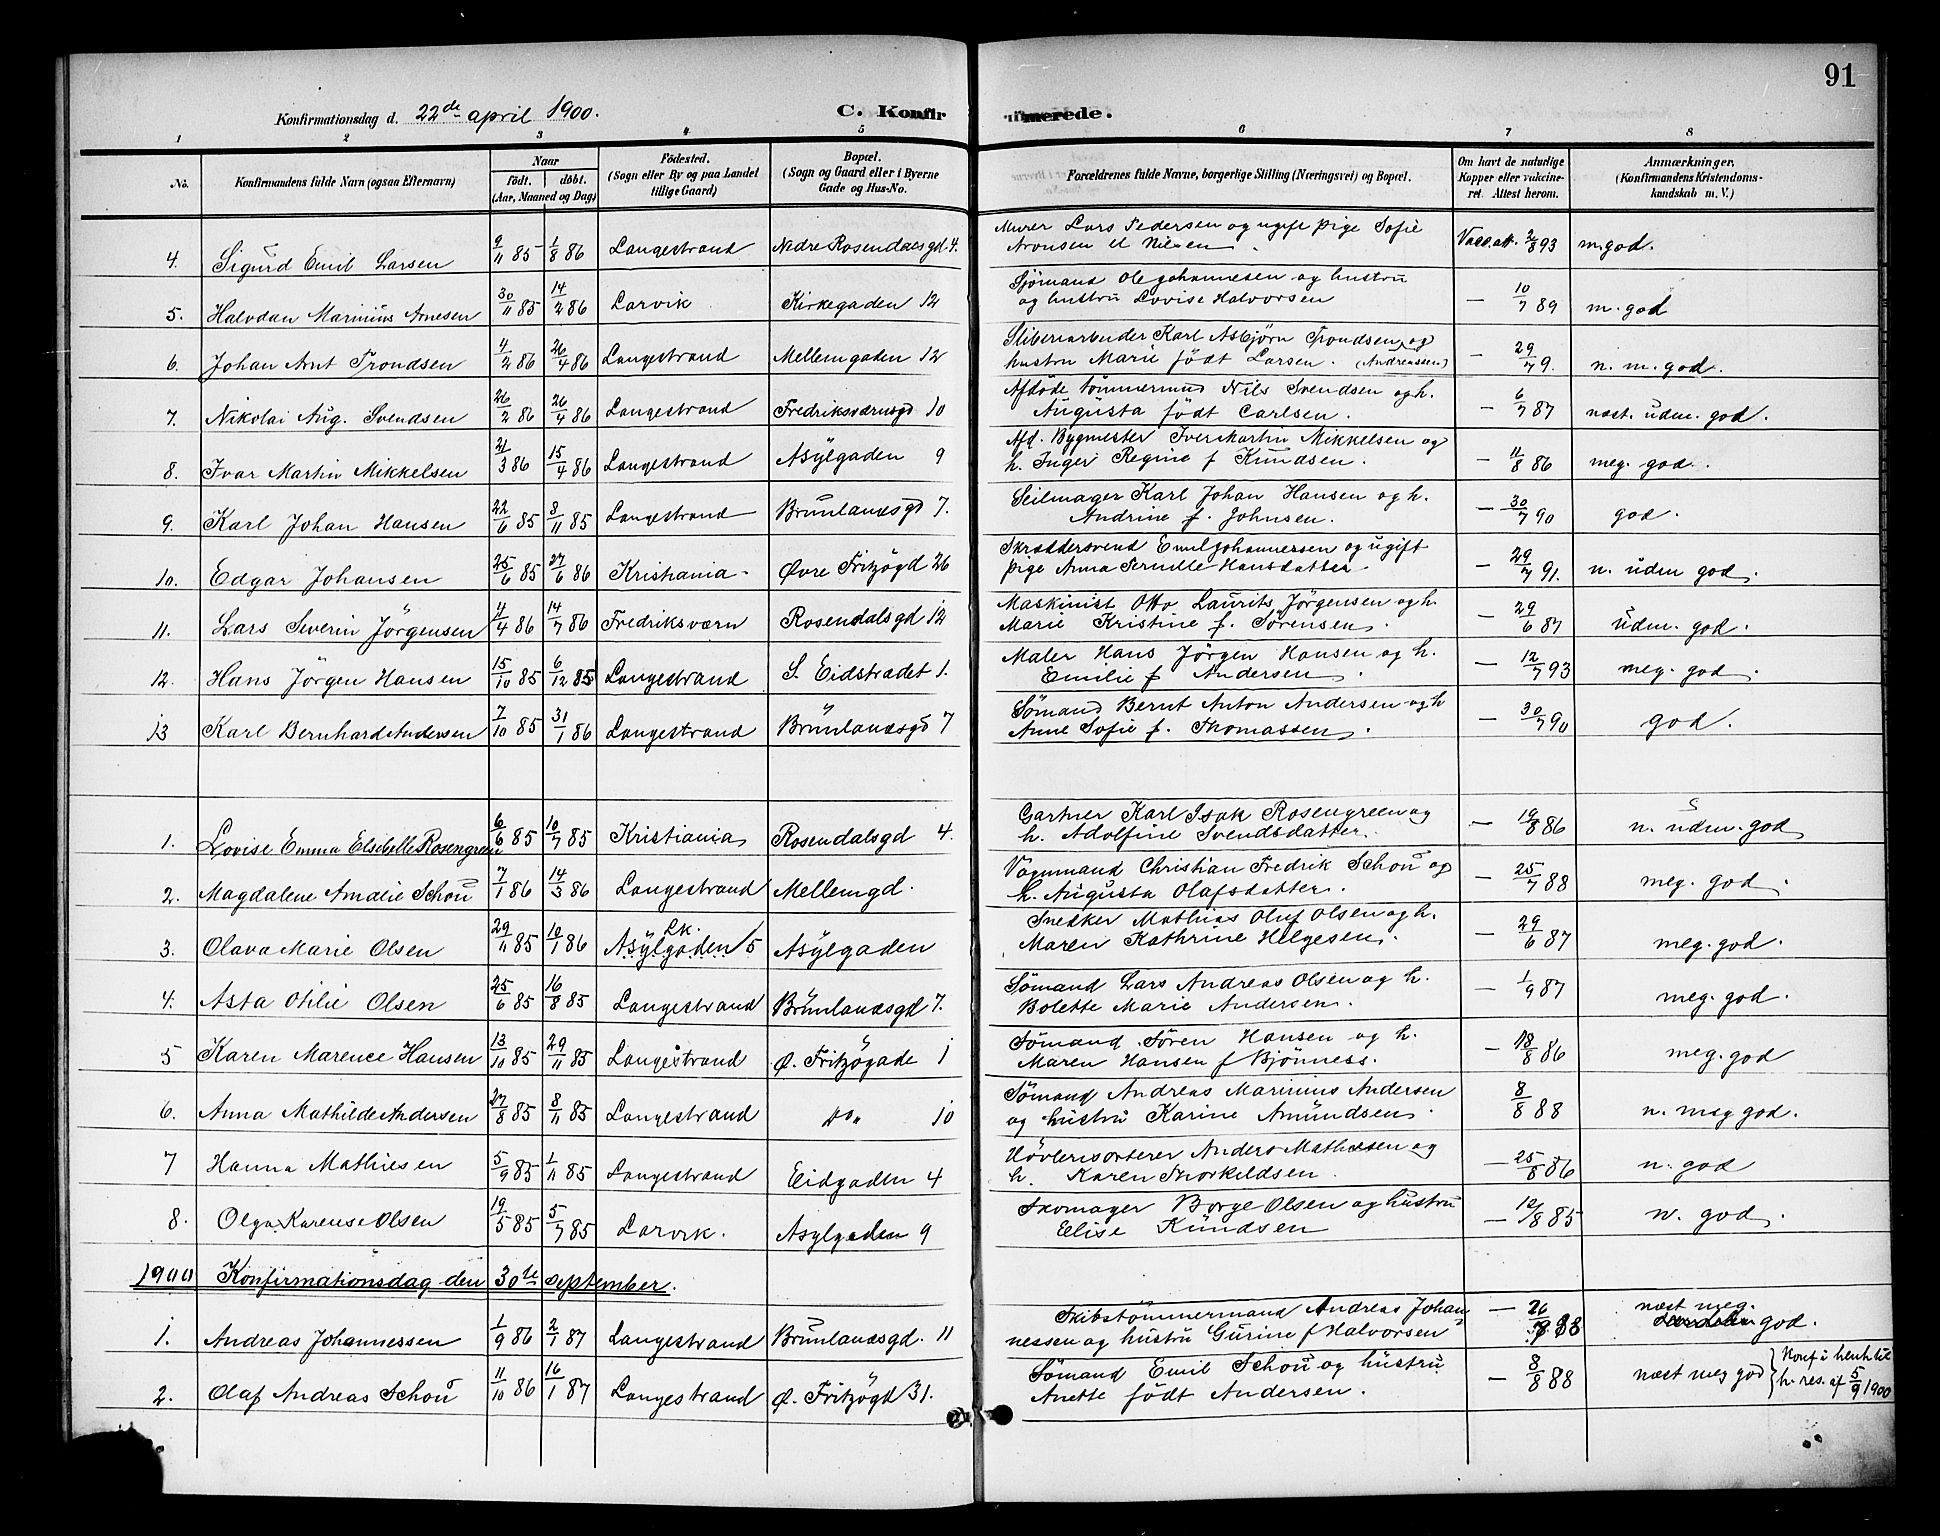 91
Konfirmationsdag d. 22de april 1900. C. Konfirmerede.
1 2 3 4 5 6 7 8
No. Konfirmandens fulde Navn (ogsaa Efternavn) Naar født. døbt. (Aar, Maaned og Dag) Fødested. (Sogn eller By og paa Landet tillige Gaard) Bopæl. (Sogn og Gaard eller i Byerne Gade og Hus-No. Forældrenes fulde Navne, borgerlige Stilling (Næringsvei) og Bopæl. Om havt de naturlige Kopper eller vakcineret. Attest herom. Anmærkninger, (Konfirmandens Kristendomskundskab m. V.)
4. Sigurd Emil Larsen 9/11 85 1/8 86 Langestrand Nedre Rosendalsgd 4. Murer Lars Pedersen og ugift pige Sofie
Aronsen el Nilsen Vacc.att. 2/8 93 m. god.
5. Halvdan Marinius Arnesen 30/11 85 14/2 86 Larvik Kirkegaden 12 Sjømand Ole Johannesen og hustru
og hustru Lovise Halvorsen — 10/7 89 m. god
6. Johan Arnt Trondsen 4/2 86 26/4 86 Langestrand Mellemgaden 12 Sliberiarbeider Karl Asbjørn Trondsen og
hustru Marie født Larsen. (Andreassen) — 29/7 9. n. m. god.
7. Nikolai Aug. Svendsen 26/2 86 26/4 86 Langestrand Fredriksværnsgd 10 Afdøde tømmermand Nils Svendsen og h.
Augusta født Carlsen. — 6/7 87 næst. uden. god.
8. Ivar Martin Mikkelsen 21/3 86 15/4 86 Langestrand Asylgaden 9 Afd. Bygmester Iver Martin Mikkelsen og
h. Inger Regine f Knudsen. — 11/8 86 meg. god.
9. Karl Johan Hansen 22/6 85 8/11 85 Langestrand Brunlanæsgd 7. Seilmager Karl Johan Hansen og h.
Andrine f. Johnsen. — 30/7 90 god.
10. Edgar Johansen 25/6 85 27/6 86 Kristiania Øvre Fritzøgd 26 Skræddersvend Emil Johannessen og ugift
pige Anna Pernille Hansdatter — 29/7 91. n. uden god.
11. Lars Severin Jörgensen 4/4 86 14/7 86 Fredriksværn Rosendalsgd 12 Maskinist Otto Laurits Jörgensen og h.
Marie Kristine f. Sörensen. — 29/6 87 uden. god.
12. Hans Jörgen Hansen 15/10 85 6/12 85 Langestrand S. Eidstrædet 1. Maler Hans Jörgen Hansen og h.
Emilie f Andersen. — 12/7 93 meg. god.
13 Karl Bernhard Andersen 7/10 85 31/1 86 Langestrand Brunlanæsgd 7 Sömand Bernt Anton Andersen og h
Anne Sofie f. Thomassen. — 30/7 90 god.
1. Lovise Emma Elsebelle Rosengreen 6/6 85 10/7 85 Kristiania Rosendalsgd 4. Gartner Karl Isak Rosengreen og
h. Adolfine Svendsdatter. — 19/8 86 n. uden. god
2. Magdalene Amalie Schou 7/1 86 14/3 86 Langestrand Mellemgd. Vognmand Christian Fredrik Schou og
h. Augusta Olafsdatter. — 25/7 88 meg. god.
3. Olava Marie Olsen 29/11 85 10/1 86 Lk. Asylgaden 5 Asylgaden Snedker Mathias Oluf Olsen og h.
Maren Kathrine Helgesen. — 29/6 87 meg. god.
4. Asta Otilie Olsen 25/6 85 16/8 85 Langestrand Brunlanæsgd 7. Sömand Lars Andreas Olsen og h.
Bolette Marie Andersen. — 1/9 87 meg. god.
5 Karen Marence Hansen 13/10 85 29/11 85 Langestrand Ø. Fritzögade 1 Sömand Sören Hansen og h.
Maren Hansen f Bjönness. — 18/8 86 meg. god
6. Anna Mathilde Andersen 27/8 85 8/11 85 Langestrand "0" 10 Sömand Andreas Marinius Andersen
og hustru Karine Amundsen. 8/8 88 n. meg god.
7 Hanna Mathiesen 5/9 85 1/11 85 Langestrand Eidgaden 4 Hövlerisorterer Anders Mathiesen og
h. Karen Thorkildsen. — 25/8 86 n. god
8. Olga Karense Olsen 19/5 85 5/7 85 Larvik. Asylgaden 9 Skomager Borge Olsen og hustru
Elise Knudsen — 12/8 85 n. god.
1900 Konfirmationsdag den 30te september.
1. Andreas Johannessen 1/9 86 2/1 87 Langestrand Brunlanæsgd. 11 Skibstömmermand Andreas Johan
nessen og hustru Gurine f Halvorsen — 26/7 88 næst meg. god.
2. Olaf Andreas Schou 11/10 86 16/1 87 Langestrand Ø. Fritzögd 31. Sömand Emil Schou og hustru
Anette födt Andersen. — 8/8 88 næst meg god } Konf i henh til
h. res. af 5/9 1900